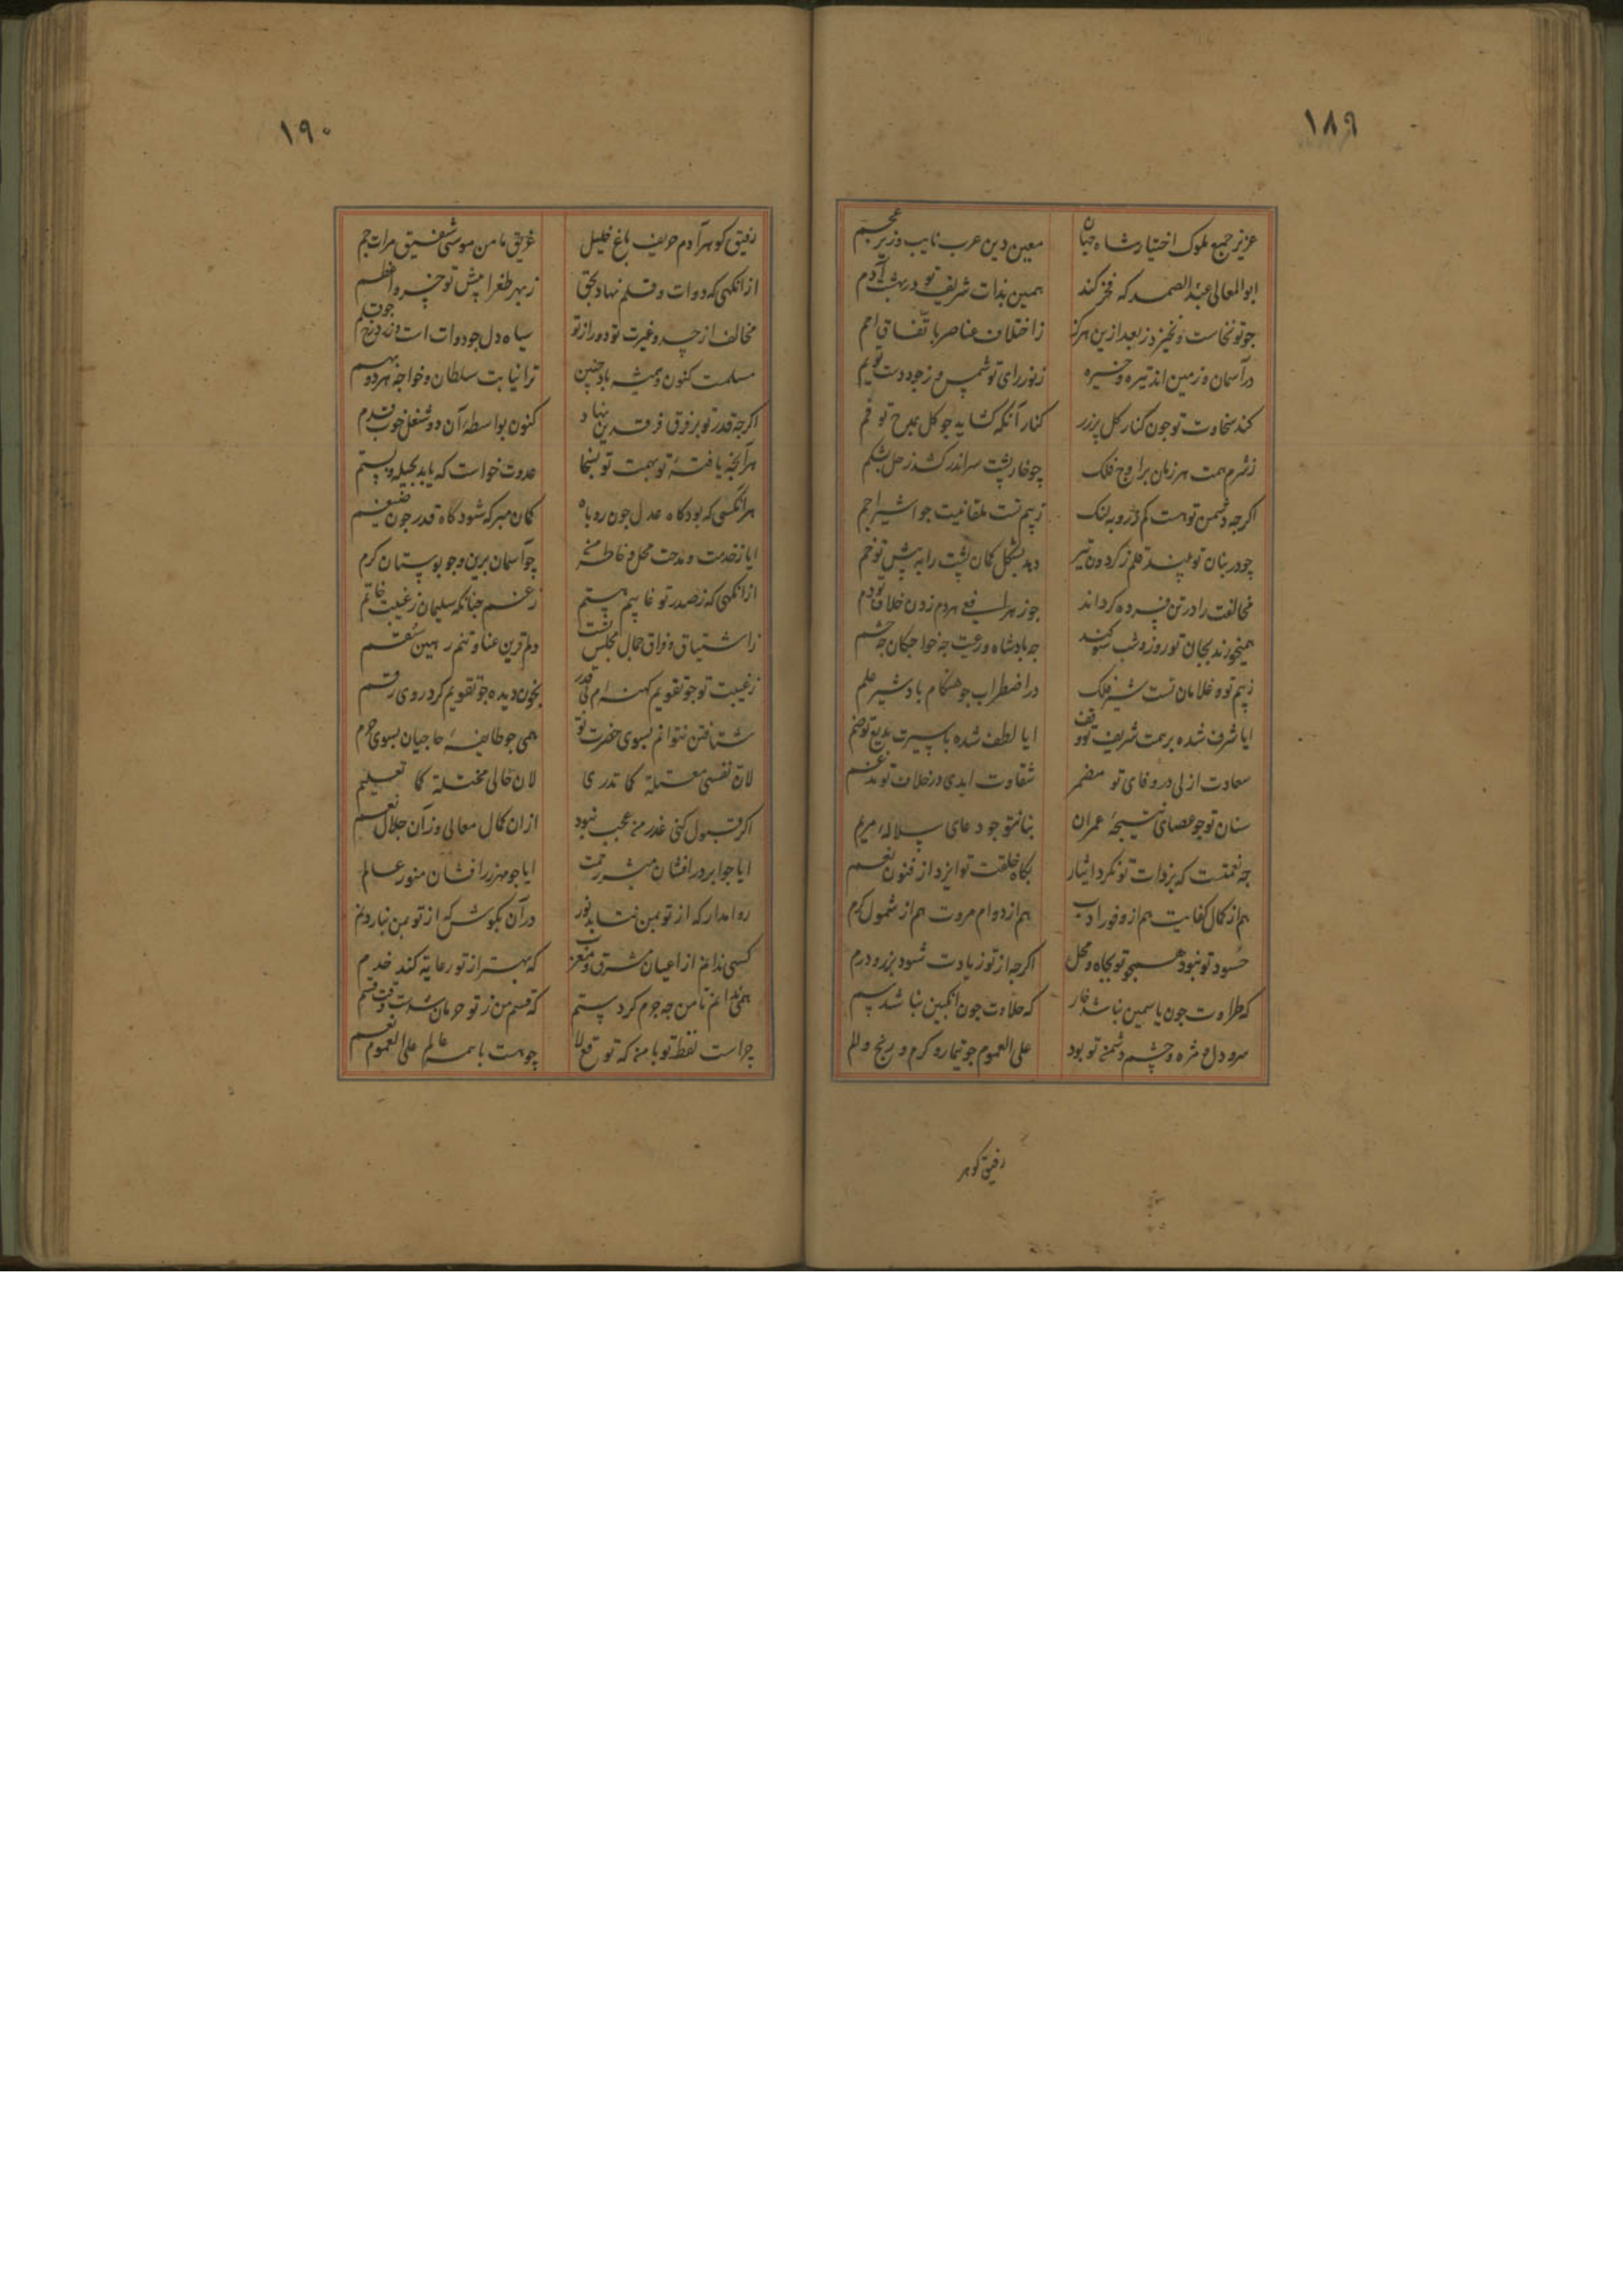 ۱۸۹
عزیز جمع ملوک اختیار شاه جهان معین دین عرب نایب وزیر عجم
ابوالمعالی عبد الصمد که فخر کند همین بذات شریف تو در بهشت آدم
جو تو نخاست و نخیزد ز بعد ازین هرگز ز اختلاف عناصر باتفاق امم
در آسمان و زمین اند تیره و خیره ز نور رای تو شمس و ز جود دست تو یم
کند سخاوت تو جون کنار کل پر زر کنار آنکه کشاید جو کل بمدح تو فم
ز شرم همت هر زمان بر اوج فلک چو خارپشت سر اندر کشد زحل بشکم
اکرجه دشمن تو هست کم ز روبه لنک ز بیم تست ملقانیت جو اشیر اجم
چو در بنان تو بیند قلم ز کردون تیر دهد بشکل کمان پشت را به پیش تو خم
مخالفت را در تن فسرده کرداند جو زهر افعی هر دم زدن خلاف تو دم
همیخورند بجان تو روز و شب سوکند جه بادشاه و رعیت جه خواجکان جه حشم
ز بیم توه غلامان تست شیر فلک در اضطراب جو هنکام باد شیر علم
ایا شرف شده بر همت شریف تو وقف ایا لطف شده با سیرت بدیع تو ضم
سعادت ازلی در وفای تو مضمر شقاوت ابدی در خلاف تو مدغم
سنان تو جو عصای نتیجهٔ عمران بنان تو جو دعای سلالهٔ مریم
جه نعمتست که بر ذات تو نکرد ایثار بکاه خلقت تو ایزد از فنون نعم
هم از کمال کفایت هم از وفور ادب هم از دوام مروت هم از شمول کرم
حسود تو نبود همجو تو بجاه و محل اکرجه از تو زیادت شود بزر و درم
که طراوت جون یاسمین نباشد خار که حلاوت جون انکبین نباشد سم
سرو دل و مژه و چشم دشمن تو بود علی العموم جو تیمار و کرم و رنج و الم
رفیق کوهر
۱۹۰
رفیق کوهر آدم حریف باغ خلیل غریق مامن موسی شفیق مرات جم
از انکهی که دوات و قلم نهاد بحق ز بهر طغرا پیش تو خسرو اعظم
مخالف از حسد و غیرت تو دور از تو سیاه دل جو دوات است و زرد رخ جو قلم
مسلمت کنون و همیشه باد جنین ترا نیابت سلطان و خواجه هر دو بهم
اکرجه قدر تو بر فرق فرقدین نهاد کنون بواسطهٔ آن دو شغل خوب قدم
هر آنجه یافتهٔ تو بهمت تو بسخا عدوت خواست که یابد بحیله و بستم
هر انکسی که بود کاه عدل جون روباه کمان مبر که شود کاه قدر جون ضیغم
ایا ز خدمت و مدحت محل و خاطر من چو آسمان برین و جو بوستان کرم
از انکهی که ز صدر تو غایبم هستم ز غم جنانکه سلیمان ز غیبت خاتم
ز اشتیاق و فراق جمال مجلس تست دلم قرین عنا و تنم رهین سقم
ز غیبت تو جو تقویم کهنه‌ام بی قدر بخون دیده جو تقویم کرد روی رقم
شتافتن نتوانم بسوی حضرت تو همی جو طایفهٔ حاجیان بسوی حرم
لان نفسی معتلة کما تدری لان حالی مختلة کما تعلم
اکر قبول کنی عذر من عجب نبود از ان کمال معالی وزان جلال نعم
ایا جو ابر در افشان مبشر رحمت ایا جو مهر زر افشان منور عالم
روا مدار که از تو بمن نتابد نور در آن بکوش که از تو بمن نبارد نم
کسی ندانم از اعیان مشرق و مغرب که بهتر از تو رعایة کند خدم
همی ندانم تا من جه جرم کردستم که قسم من ز تو حرمان شدست وقت قسم
چراست نقط تو با من که توقع لا چو هست با همه عالم علی العموم نعم